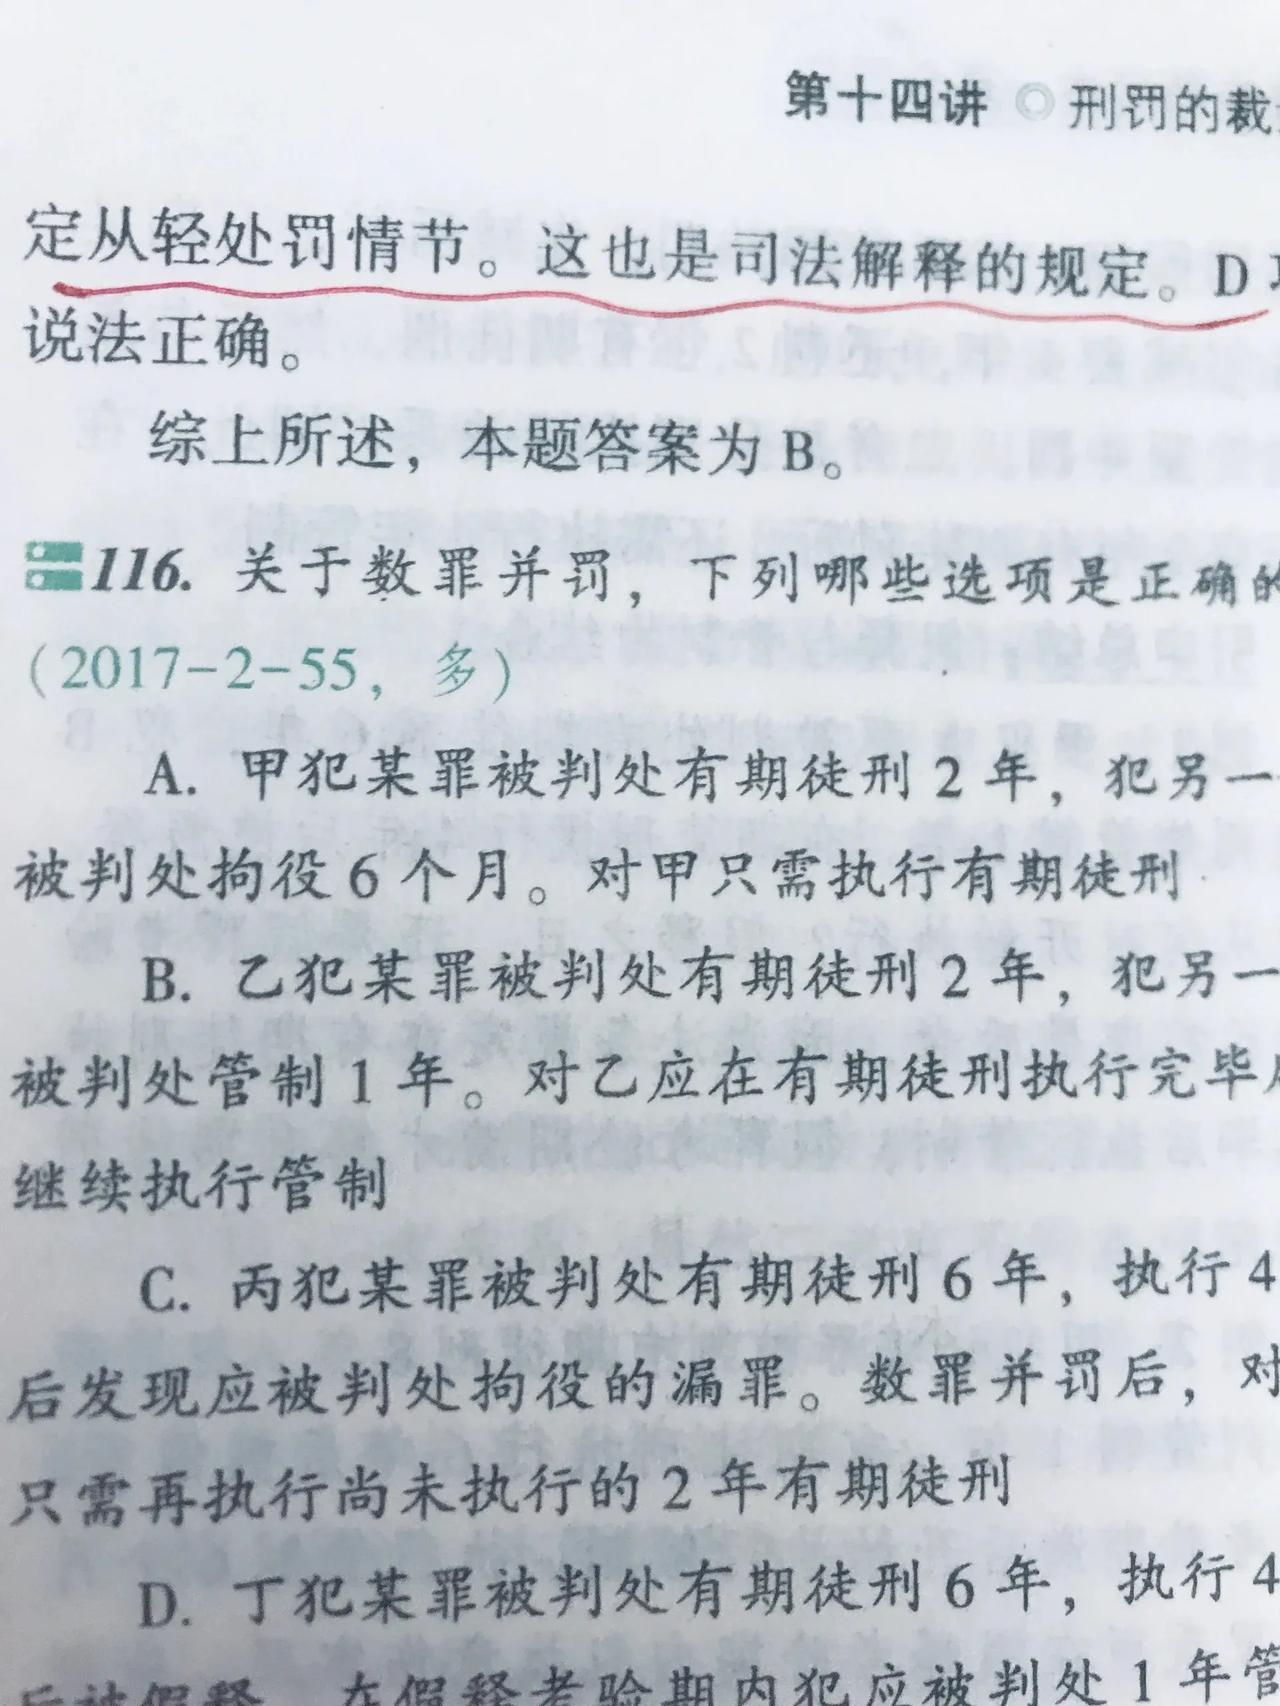 第十四讲 刑罚的裁
定从轻处罚情节。这也是司法解释的规定。D
说法正确。
综上所述，本题答案为 B。
116. 关于数罪并罚，下列哪些选项是正确的
(2017-2-55，多)
A. 甲犯某罪被判处有期徒刑 2 年，犯另一
被判处拘役 6 个月。对甲只需执行有期徒刑
B. 乙犯某罪被判处有期徒刑 2 年，犯另一
被判处管制 1 年。对乙应在有期徒刑执行完毕
继续执行管制
C. 丙犯某罪被判处有期徒刑 6 年，执行 4
后发现应被判处拘役的漏罪。数罪并罚后，对
只需再执行尚未执行的 2 年有期徒刑
D. 丁犯某罪被判处有期徒刑 6 年，执行 4
后被假释，在假释考验期内犯应被判处 1 年管